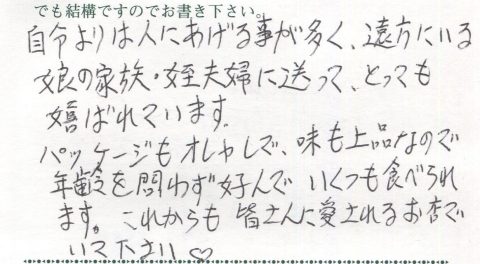 でも結構ですのでお書き下さい。
自分よりは人にあげる事が多く、遠方にいる
娘の家族・姪夫婦に送って、とっても
嬉ばれています。
パッケージもオシャレで、味も上品なので
年齢を問わず好んで いくつも食べられ
ます。これからも 皆さんに愛されるお店で
いて下さい♡